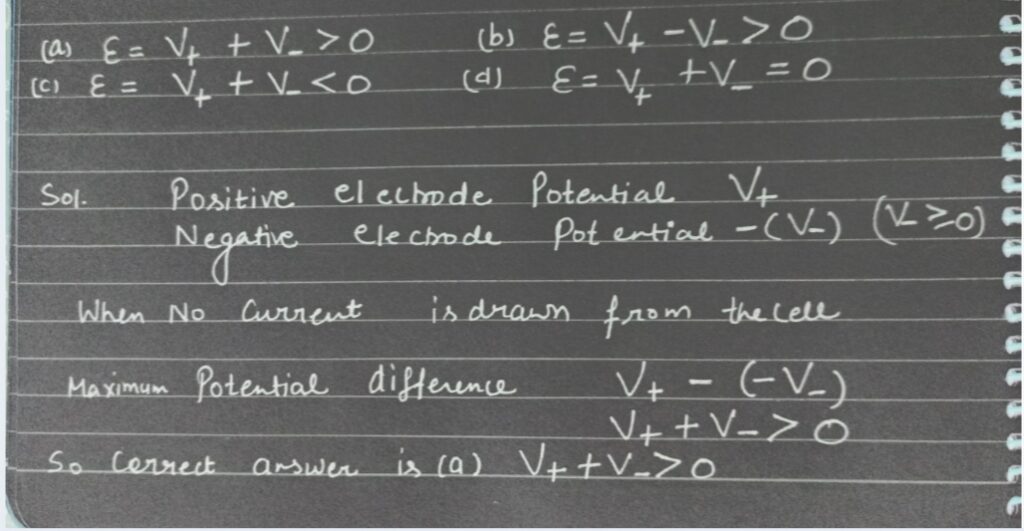 (a) ε = V₊ + V₋ > 0 (b) ε = V₊ - V₋ > 0
(c) ε = V₊ + V₋ < 0 (d) ε = V₊ + V₋ = 0
Sol. Positive electrode Potential V₊
Negative electrode Potential -(V₋) (V₋ ≥ 0)
When No Current is drawn from the cell
Maximum Potential difference V₊ - (-V₋)
V₊ + V₋ > 0
So Correct answer is (a) V₊ + V₋ > 0